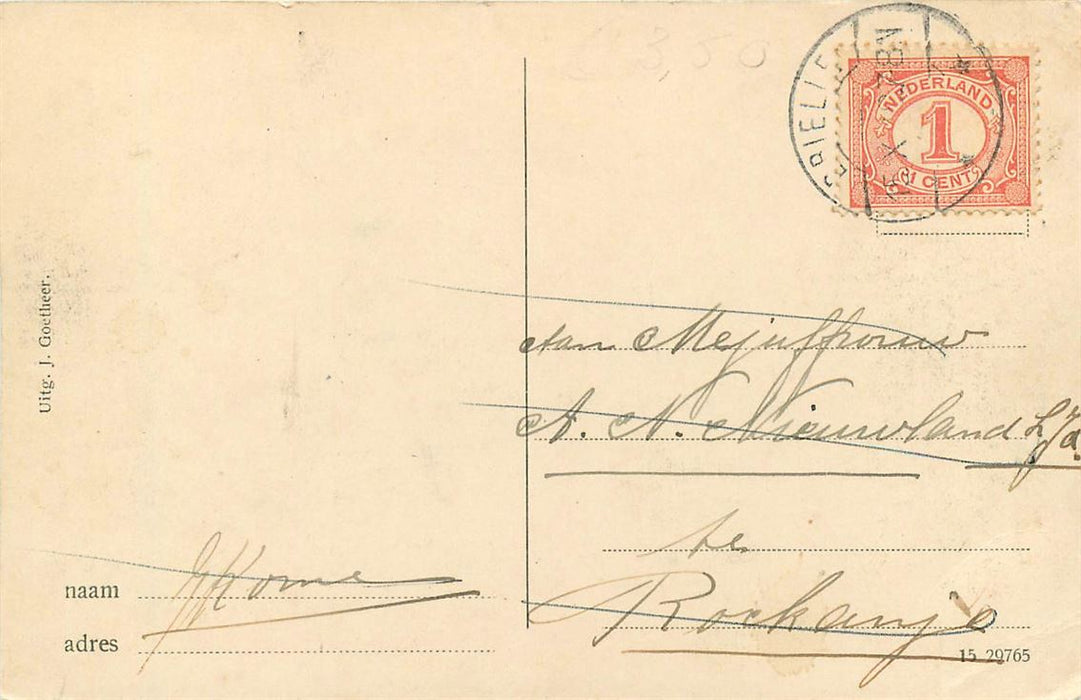 3,50
BRIELLE
NEDERLAND
1
1 CENT
Uitg. J. Goetheer.
Aan Mejuffrouw
A. N. Nieuwland Lzd
te
Rockanje
naam
adres
15 29765